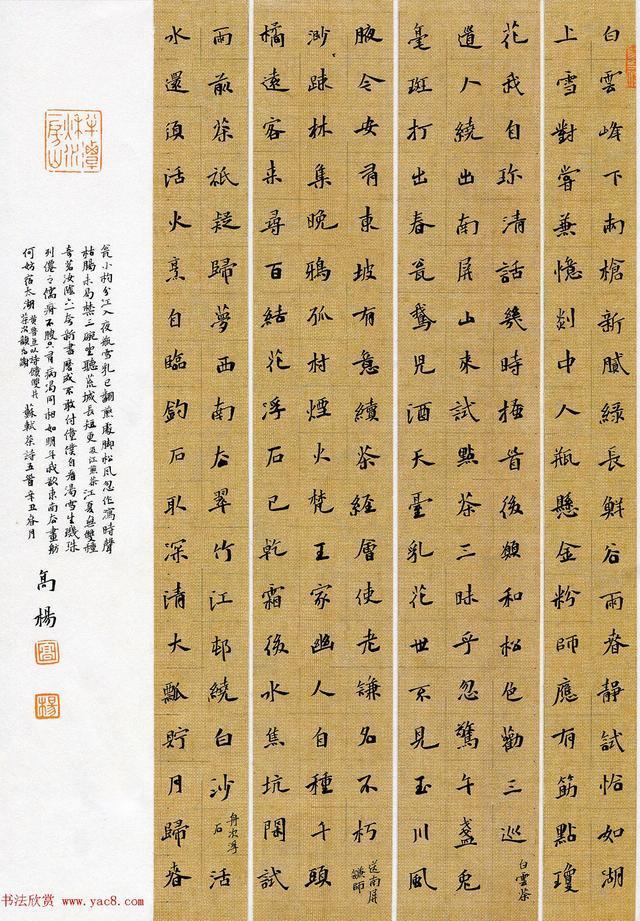 白雲峰下兩槍新膩綠長鮮谷雨春靜試恰如湖
上雪對嘗兼憶剡中人瓶懸金粉師應有筯點瓊
花我自珎清話幾時搔首後願和松色勸三巡 白雲茶
道人繞出南屏山來試點茶三昧手忽驚午盞兔
毫斑打出春瓮鵝兒酒天臺乳花世不見玉川風
腋今安有東坡有意續茶經會使老謙名不朽 送南屏謙師
渺踈林集晚鴉孤村煙火梵王家幽人自種千頭
橘遠客來尋百結花浮石已乾霜後水焦坑閑試
雨前茶祇疑歸夢西南去翠竹江邨繞白沙 舟次浮石 活
水還須活火烹自臨釣石取深清大瓢貯月歸春
瓮小杓分江入夜瓶雪乳已翻煎處脚松風忽作瀉時聲
枯腸未易禁三碗坐聽荒城長短更 汲江煎茶 江夏無雙種
奇茗汝陰六一夸新書磨成不敢付僮僕自看湯雪生璣珠
列僊之儒瘠不腴只有病渴同相如明年我欲東南去畫舫
何妨宿太湖 黄魯直以詩饋雙井茶次韻為謝 蘇軾茶詩五首辛丑春月
高楊
高
楊
书法欣赏 www.yac8.com